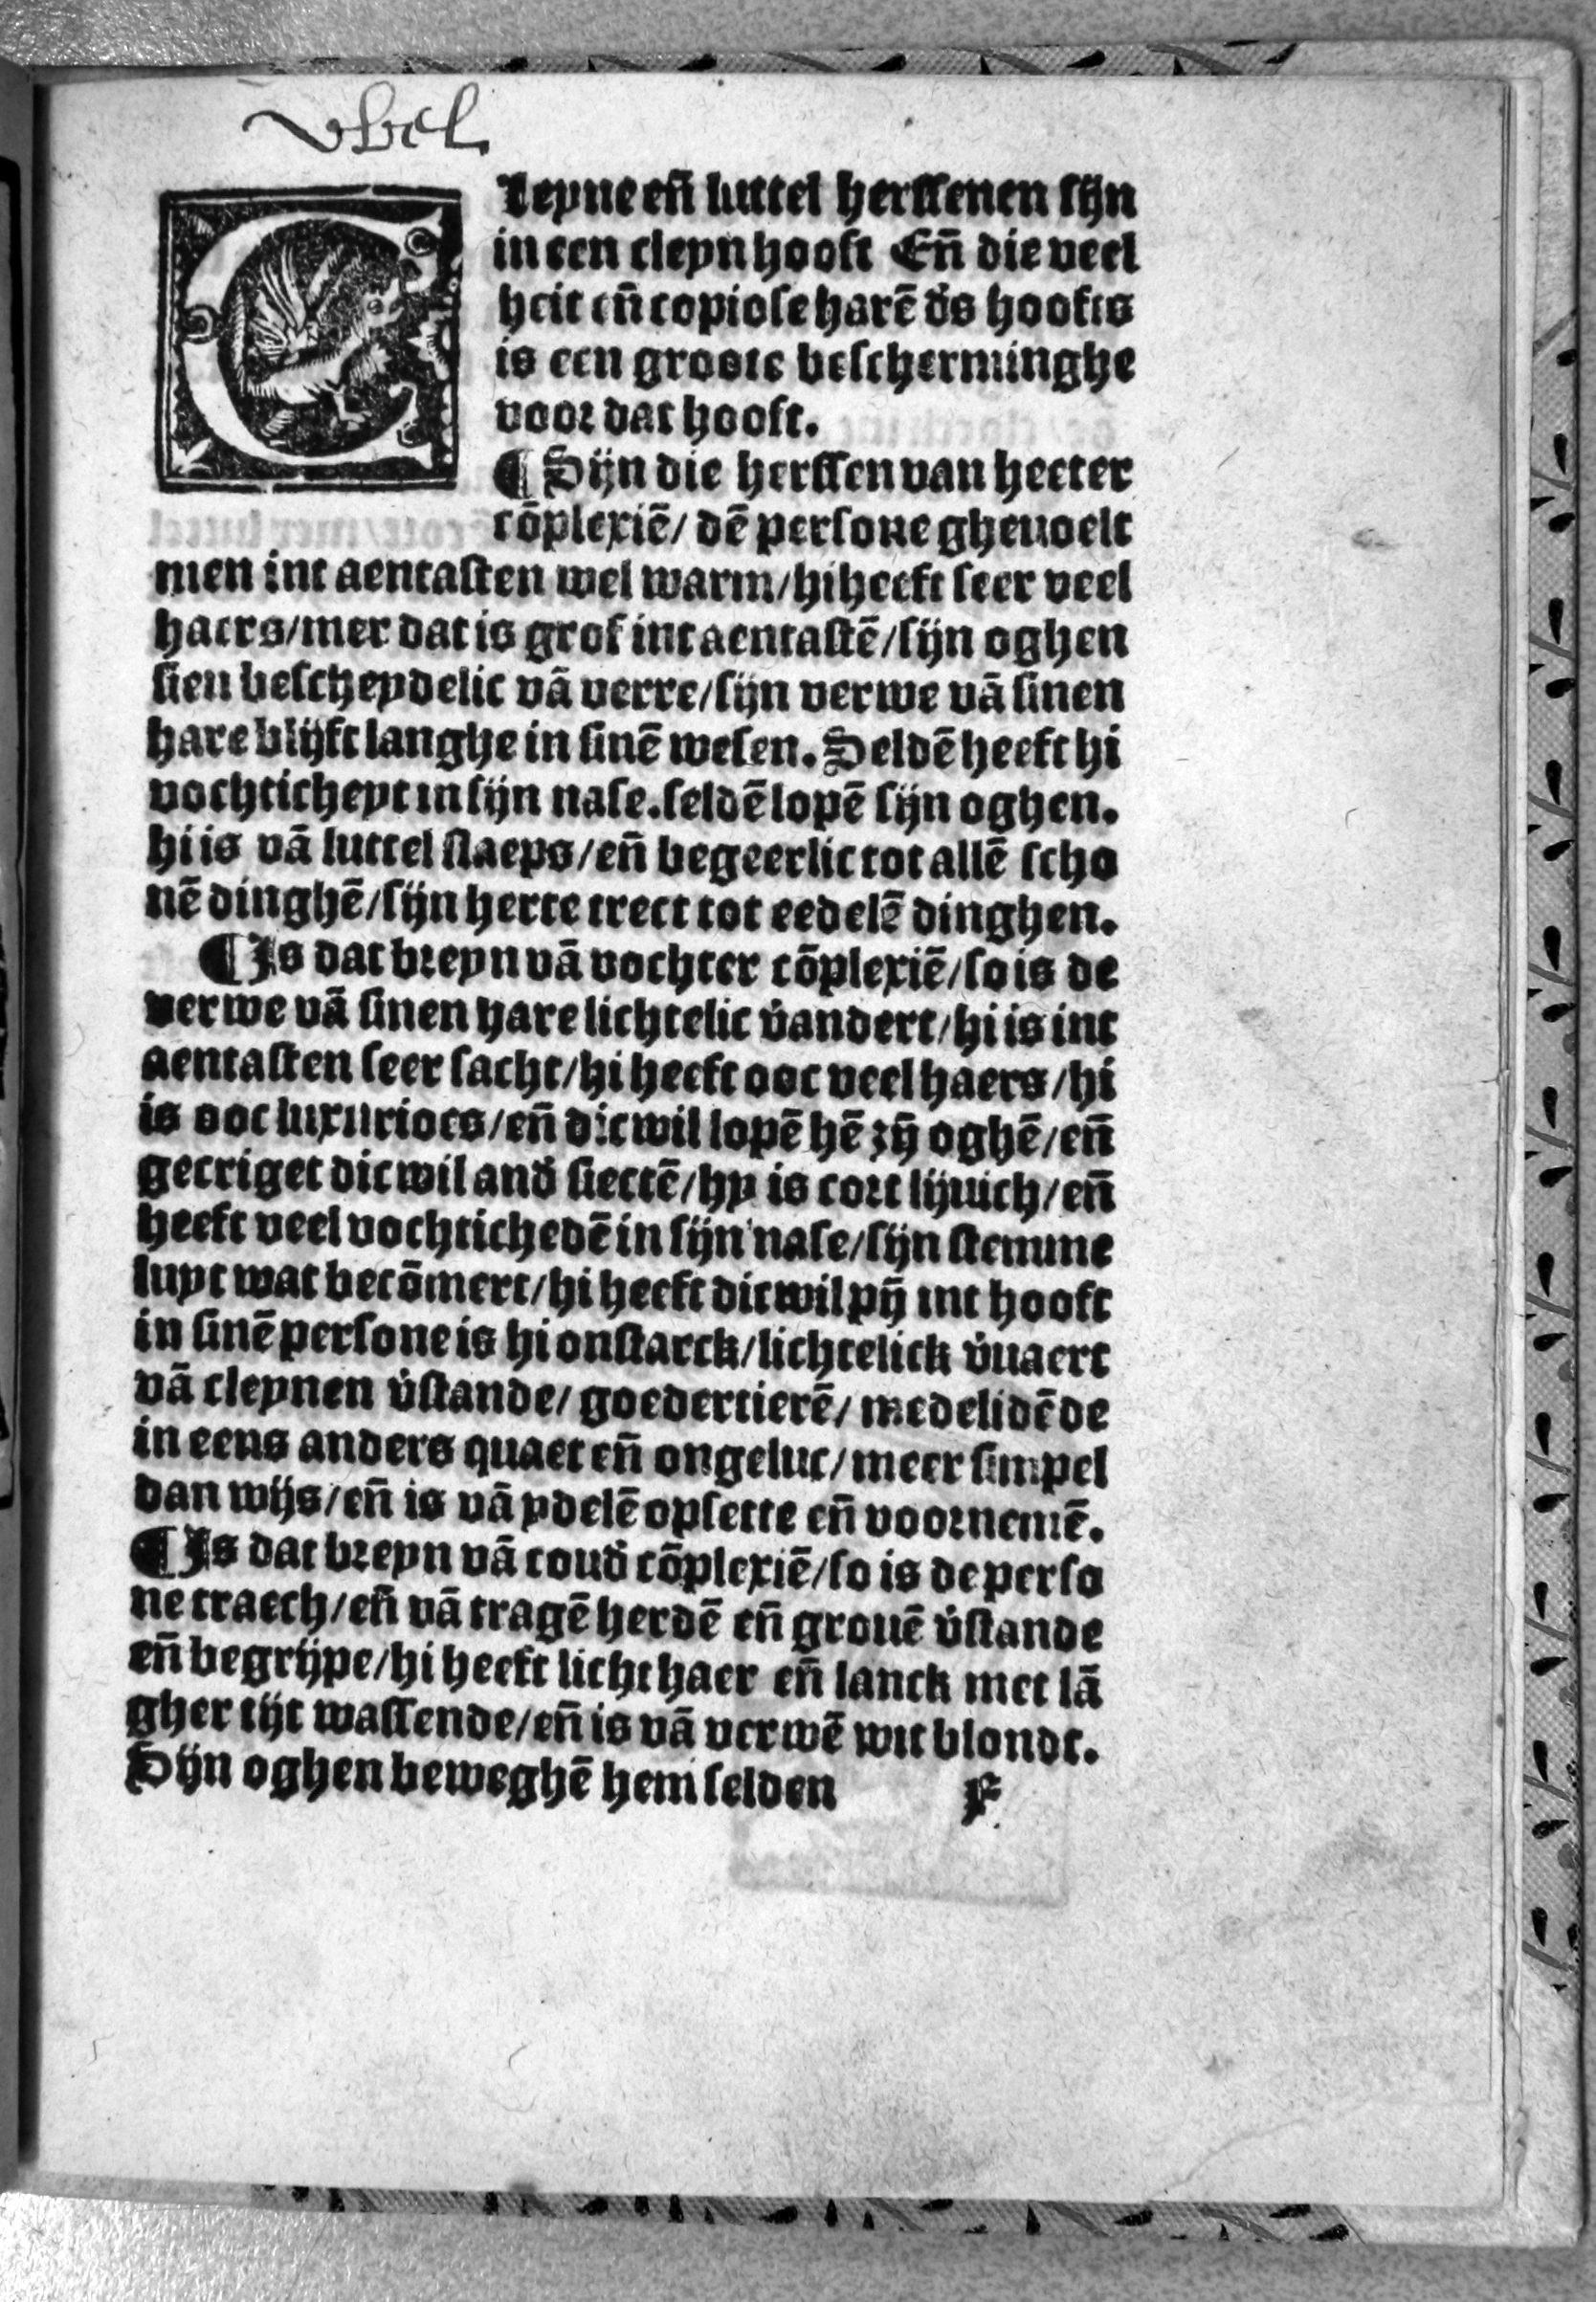 vbel
Cleyne eñ luttel herssenen sijn
in een cleyn hooft Eñ die veel
heit eñ copiose harē d̕s hoofts
is een groote bescherminghe
voor dat hooft.
¶ Sijn die herssen van heeter
cōplexiē/ dē persone ghevoelt
men int aentasten wel warm/hi heeft seer veel
haers/mer dat is grof int aentastē/sijn oghen
sien bescheydelic vā verre/sijn verwe vā sinen
hare blijft langhe in sinē wesen. Seldē heeft hi
vochticheyt in sijn nase.seldē lopē sijn oghen.
hi is vā luttel slaeps/eñ begeerlic tot allē scho
nē dinghē/sijn herte trect tot eedelē dinghen.
¶ Is dat breyn vā vochter cōplexiē/so is de
verwe vā sinen hare lichtelic v̕andert/hi is int
aentasten seer sacht/hi heeft ooc veel haers/hi
is ooc luxurioes/eñ dicwil lopē hē zȳ oghē/eñ
gecriget dicwil and̕ siectē/hy is cort lijuich/eñ
heeft veel vochtichedē in sijn nase/sijn stemme
luyt wat becōmert/hi heeft dicwil pȳ int hooft
in sinē persone is hi onstarck/lichtelick v̕uaert
vā cleynen v̕stande/ goedertierē/ medelidēde
in eens anders quaet eñ ongeluc/meer simpel
dan wijs/eñ is vā ydelē opsette eñ voornemē.
¶ Is dat breyn vā coud̕ cōplexiē/so is de perso
ne traech/eñ vā tragē herdē eñ grouē v̕stande
eñ begrijpe/hi heeft licht haer eñ lanck met lā
gher tijt wassende/eñ is vā verwē wit blondt.
Sijn oghen beweghē hem selden F